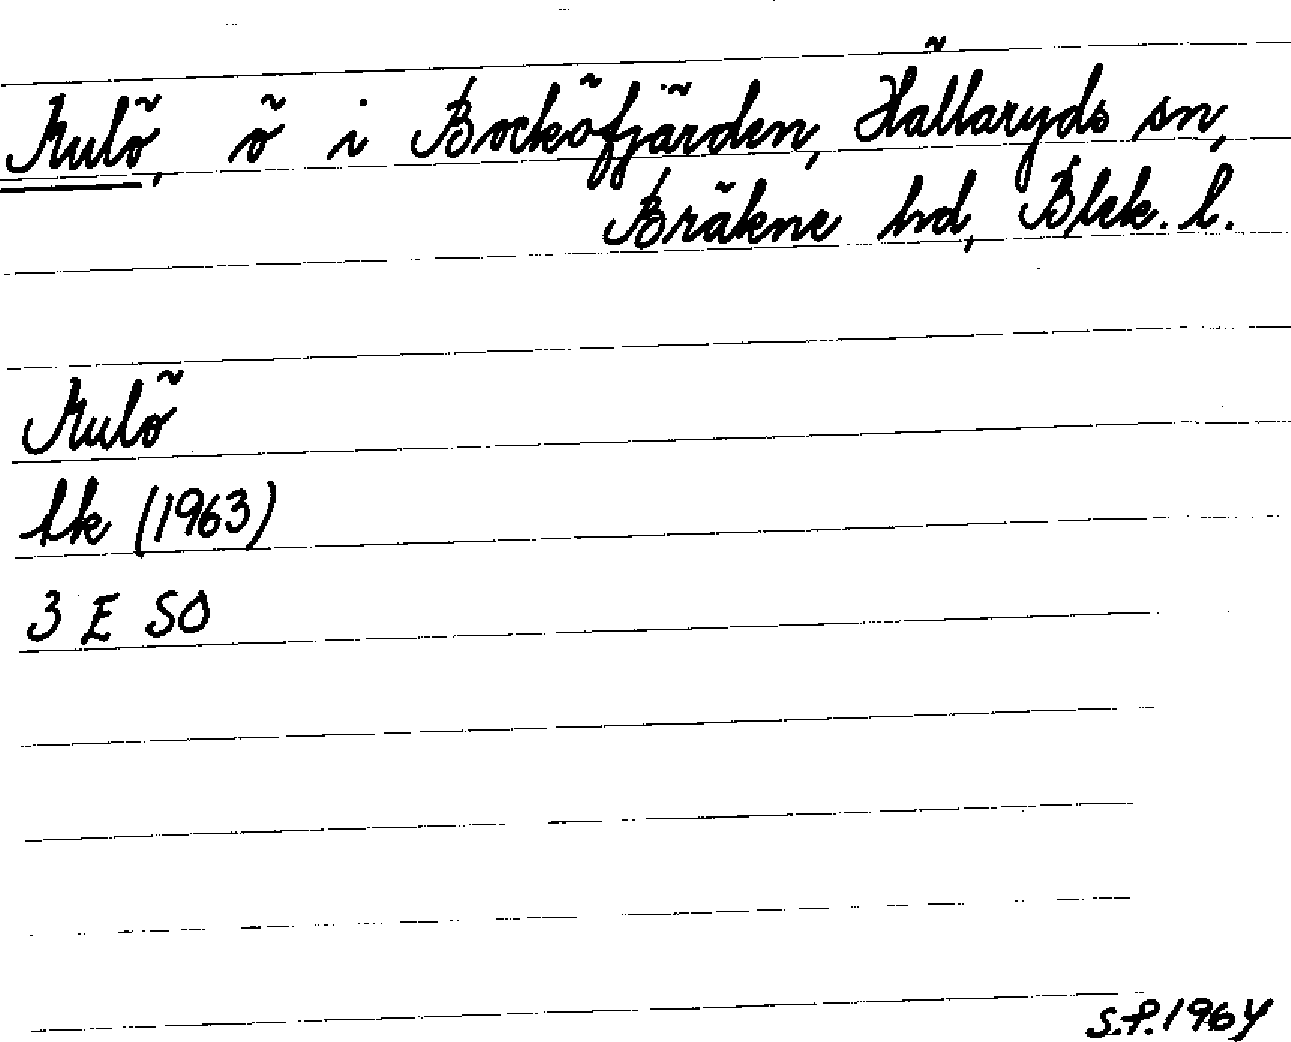 Kulö, ö i Bocköfjärden, Hällaryds sn,
Bräkne hd, Blek. l.
Kulö
tk (1963)
3 E SO
S.P. 1964